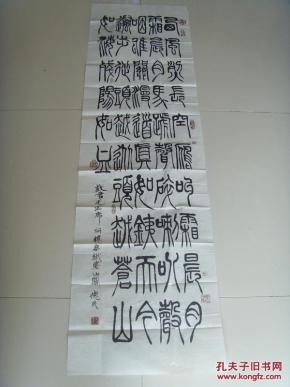 西風烈長空雁叫霜晨月
霜晨月馬蹄聲碎喇叭聲
咽雄關漫道真如鐵而今
邁步從頭越從頭越蒼山
如海殘陽如血
毛主席詞憶秦娥婁山關
孔夫子旧书网